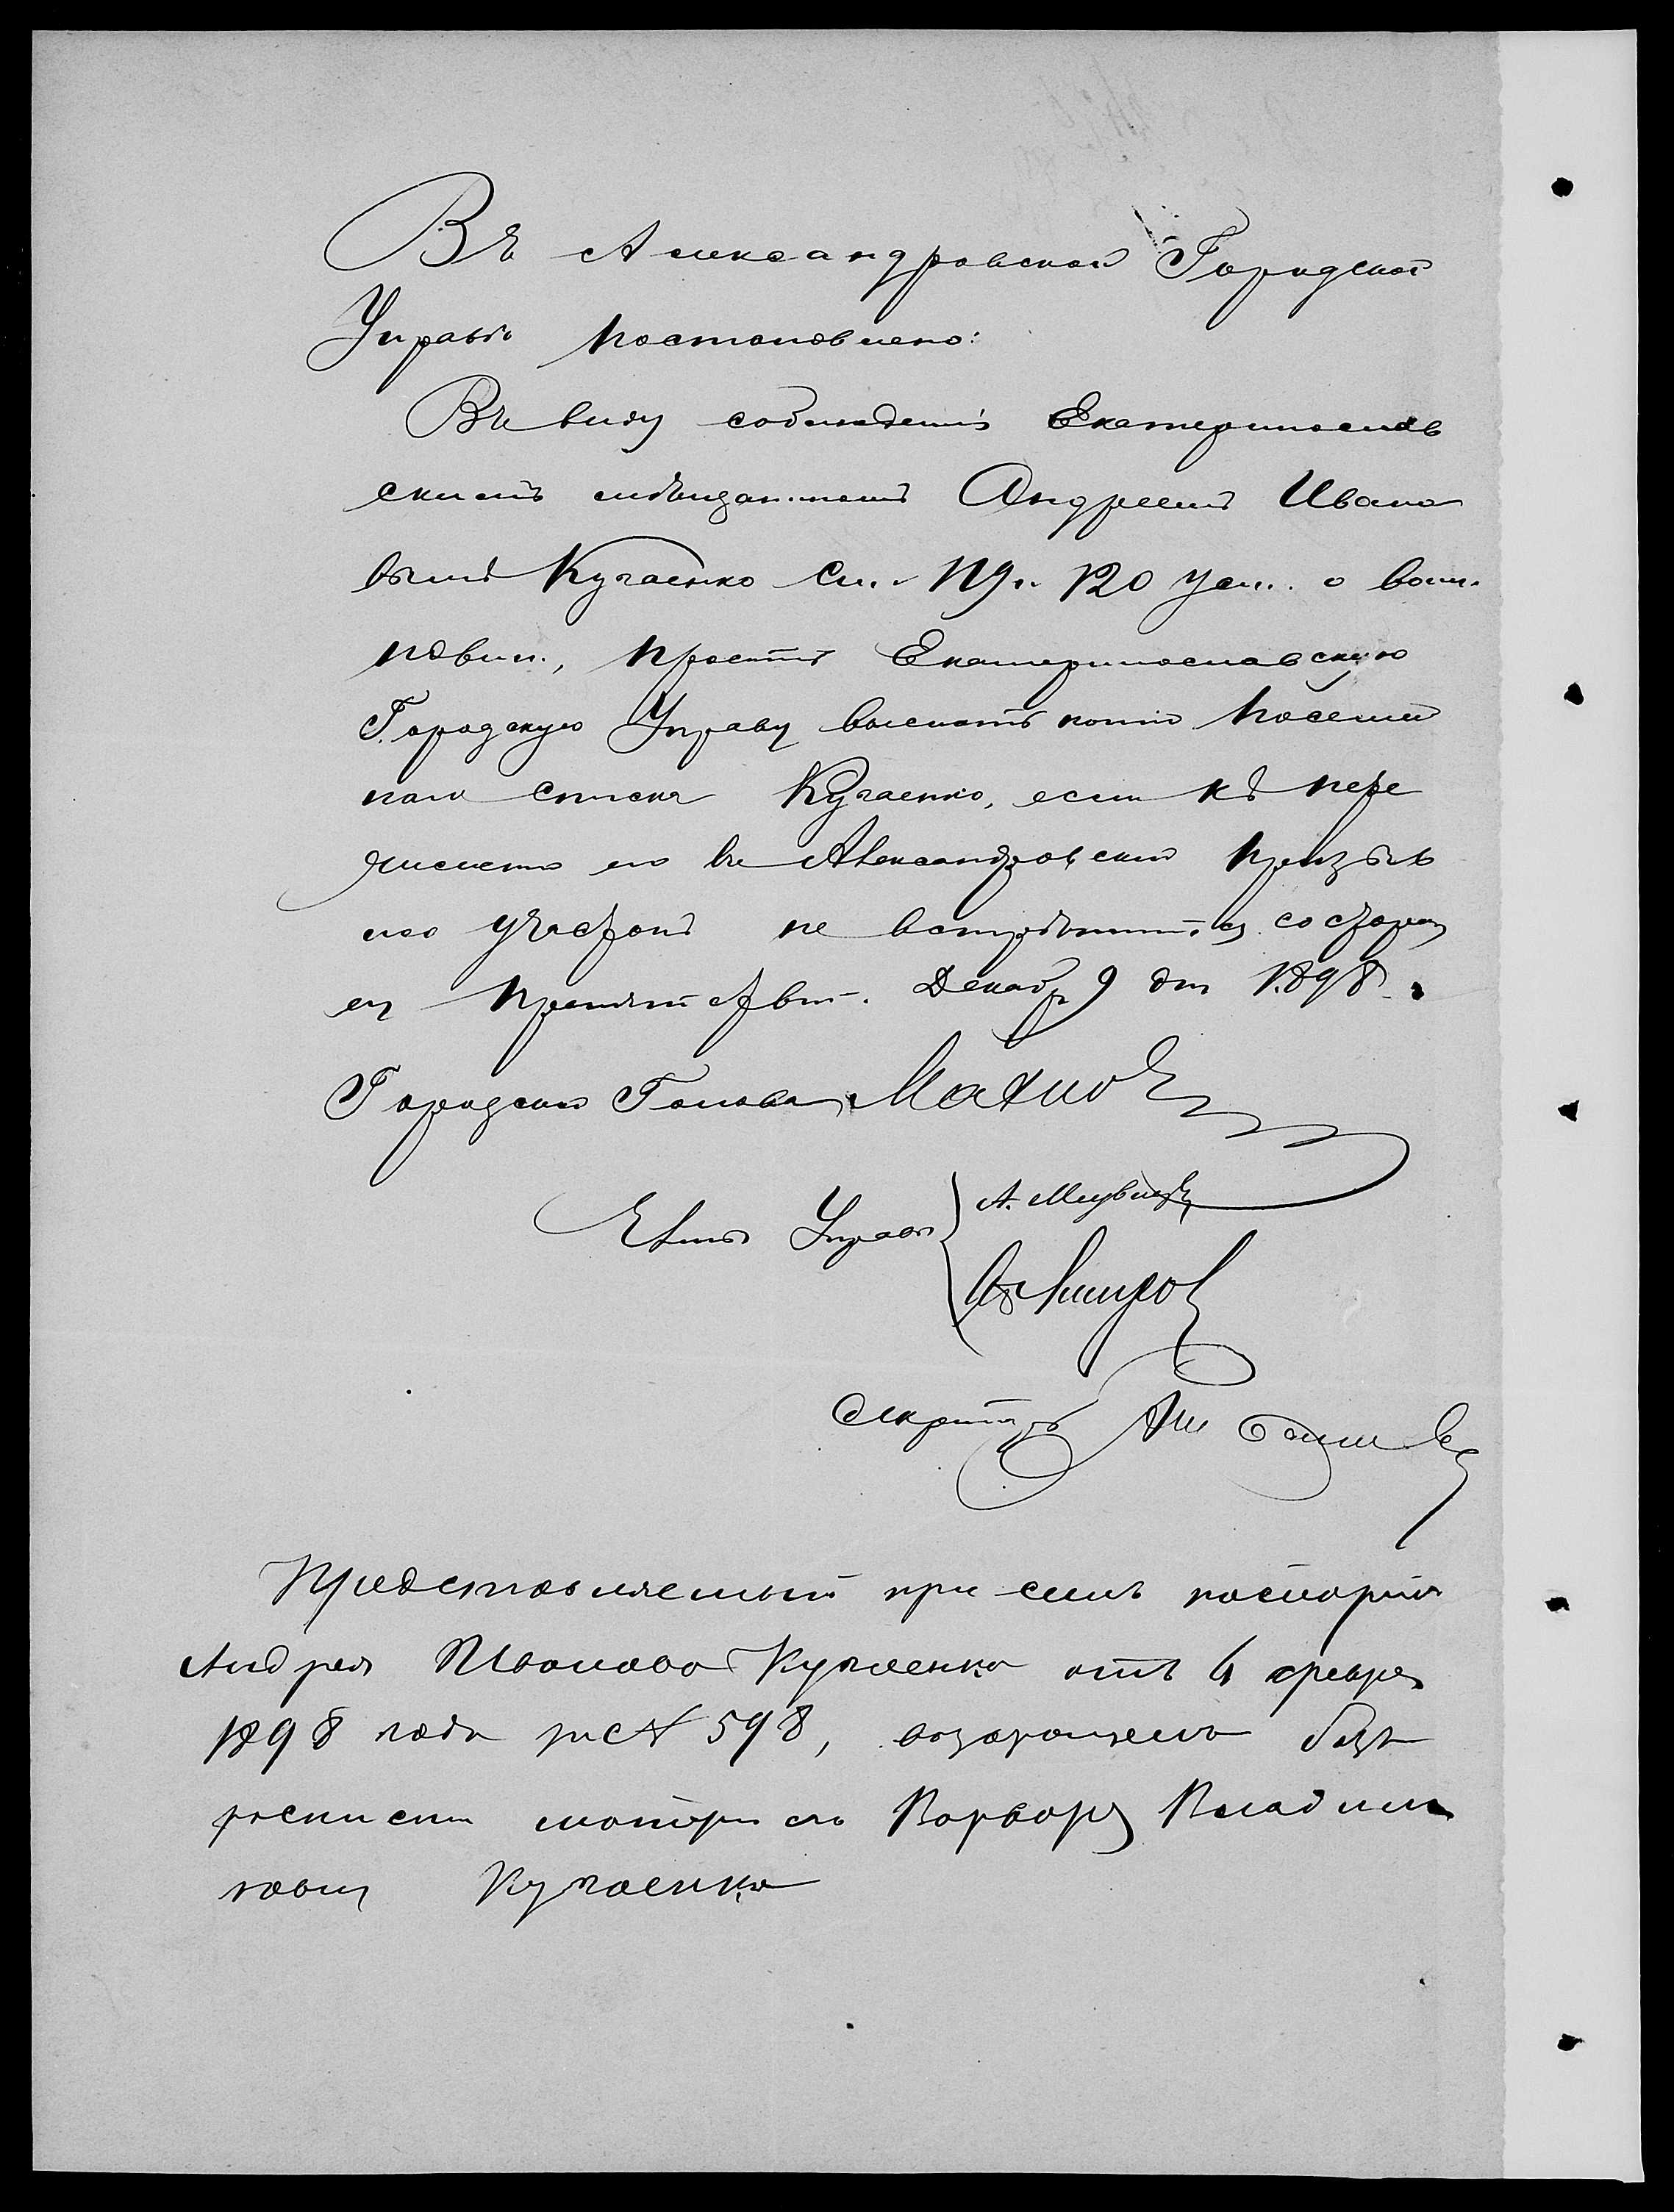 Въ Александровской Городской
Управѣ постановлено:
Въ виду соблюденія Екатеринослав
скимъ мѣщаниномъ Андреемъ Ивано
вымъ Кучаенко ст. 119 и 120 уст. о воин.
повин., просить Екатеринославскую
Городскую Управу выслать копію посемей
наго списка Кучаенко, если къ пере
численію его въ Александровскій призыв
ной участокъ не встрѣтится со сторо
ны препятствій. Декабр 9 дня 1898 г.
Городской Голова Махно
Члены Управы А. Медвѣдев
Секретарь
Представляемый при семъ паспортъ
Андрея Иванова Кучаенко отъ 6 февр
1898 года за № 598, возвращенъ подъ
росписку матери его Варвары Владими
ровны Кучаенко